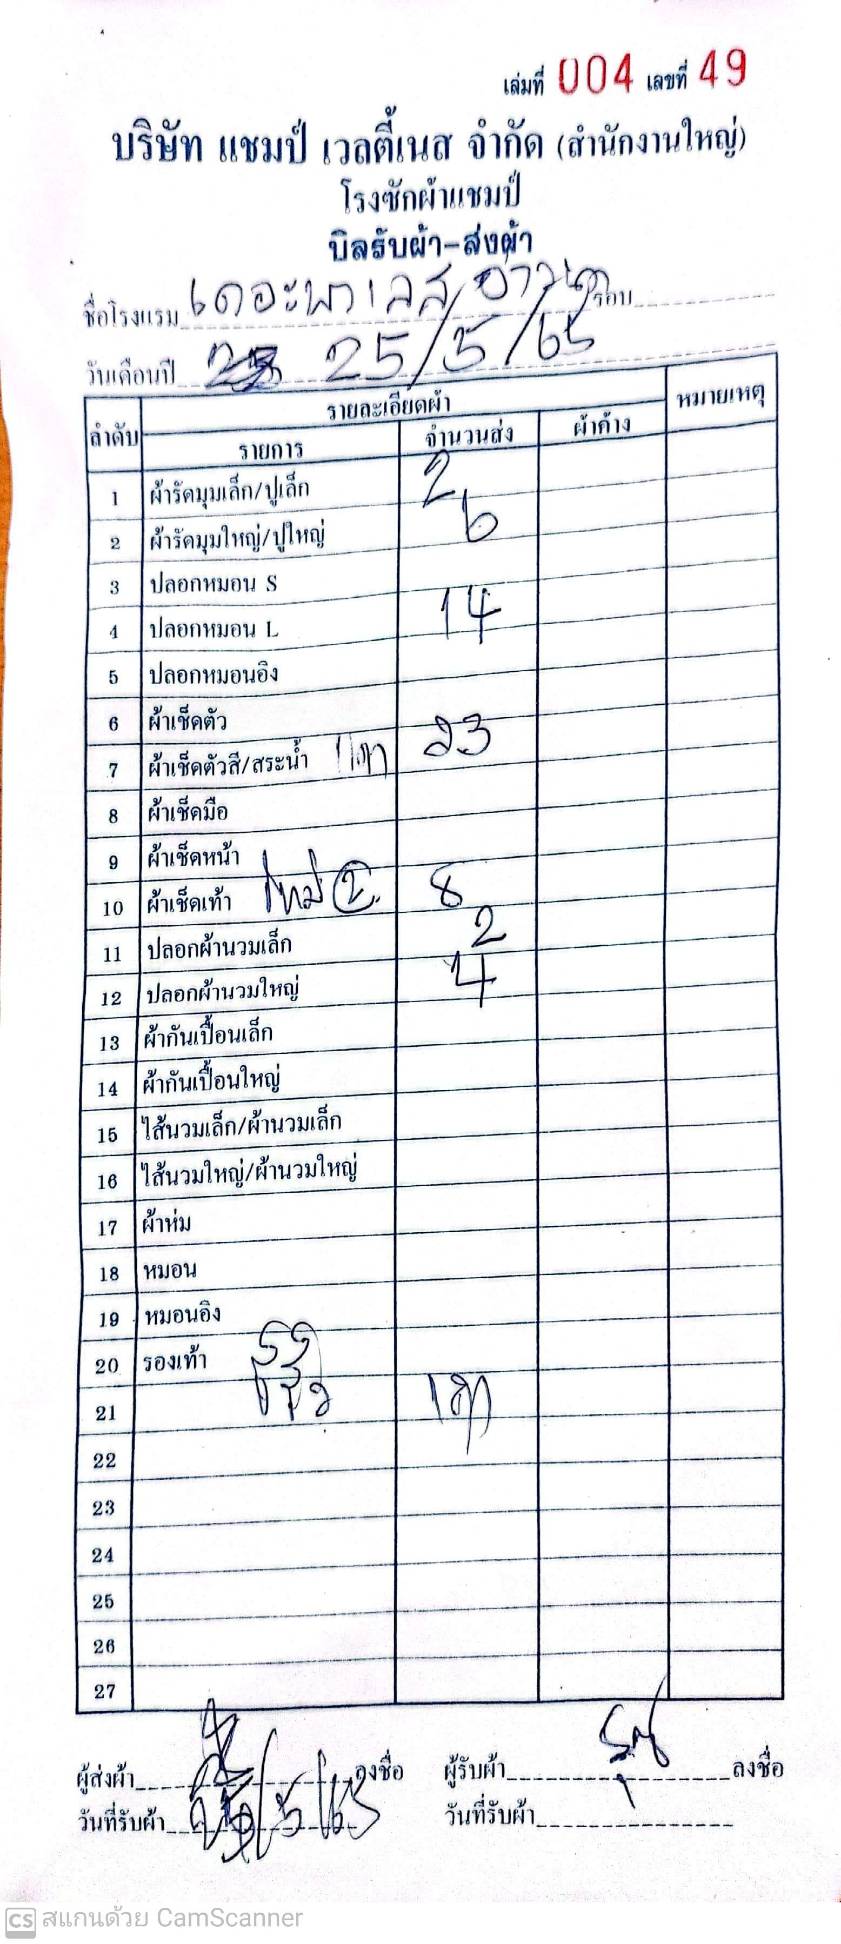 เล่มที่ 004 เลขที่ 49
บริษัท แชมป์ เวลตี้เนส จำกัด (สำนักงานใหญ่)
โรงซักผ้าแชมป์
บิลรับผ้า-ส่งผ้า
ชื่อโรงแรม เดอะพาเลส อ่าวนาง รอบ
วันเดือนปี 25/5/65
ลำดับ รายละเอียดผ้า หมายเหตุ
รายการ จำนวนส่ง ผ้าค้าง
1 ผ้ารัดมุมเล็ก/ปูเล็ก 2
2 ผ้ารัดมุมใหญ่/ปูใหญ่ 6
3 ปลอกหมอน S
4 ปลอกหมอน L 14
5 ปลอกหมอนอิง
6 ผ้าเช็ดตัว
7 ผ้าเช็ดตัวสี/สระน้ำ เทา 23
8 ผ้าเช็ดมือ
9 ผ้าเช็ดหน้า
10 ผ้าเช็ดเท้า ใหม่ 2 8
11 ปลอกผ้านวมเล็ก 2
12 ปลอกผ้านวมใหญ่ 4
13 ผ้ากันเปื้อนเล็ก
14 ผ้ากันเปื้อนใหญ่
15 ไส้นวมเล็ก/ผ้านวมเล็ก
16 ไส้นวมใหญ่/ผ้านวมใหญ่
17 ผ้าห่ม
18 หมอน
19 หมอนอิง
20 รองเท้า
21
22
23
24
25
26
27
ผู้ส่งผ้า ลงชื่อ ผู้รับผ้า ลงชื่อ
วันที่รับผ้า วันที่รับผ้า
CS สแกนด้วย CamScanner